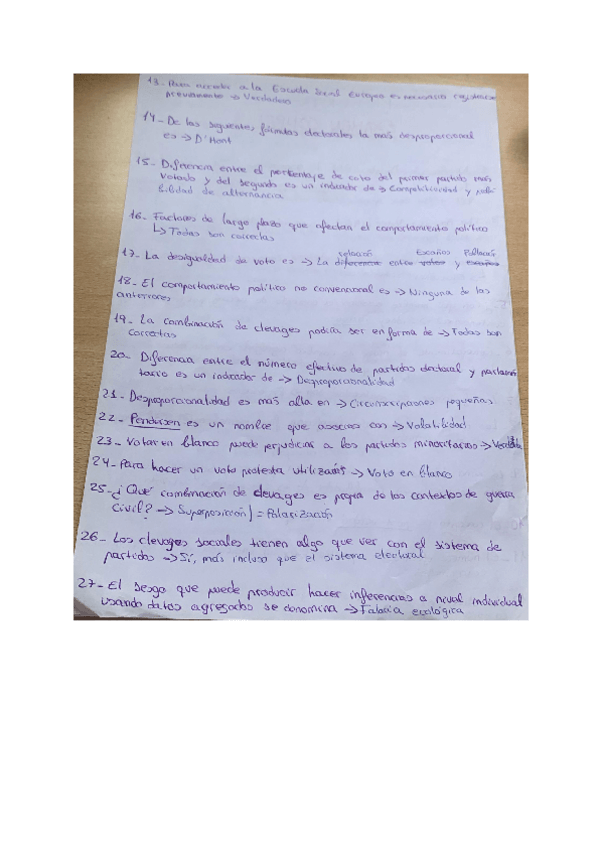 13- Para acceder a la Escuela Social Europea es necesario registrarse
previamente → Verdadero
14- De las siguientes fórmulas electorales la más desproporcional
es → D'Hont
15- Diferencia entre el porcentaje de voto del primer partido más
votado y del segundo es un indicador de → Competitividad y posi-
bilidad de alternancia
16- Factores de largo plazo que afectan el comportamiento político
↳ Todas son correctas
relación Escaños Población
17- La desigualdad de voto es → La diferencia entre votos y escaños
18- El comportamiento político no convencional es → Ninguna de las
anteriores
19- La combinación de clevages podría ser en forma de → Todas son
correctas
20- Diferencia entre el número efectivo de partidos electoral y parlamen
tario es un indicador de → Desproporcionalidad
21- Desproporcionalidad es más alta en → Circunscripciones pequeñas
22- Pendersen es un nombre que asocias con → Volatilidad
23- Votar en blanco puede perjudicar a los partidos minoritarios →
24- Para hacer un voto protesta utilizarás → Voto en blanco
25- ¿Qué combinación de clevages es propia de los contextos de guerra
civil? → Superposición = Polarización
26- Los clevages sociales tienen algo que ver con el sistema de
partidos → Sí, más incluso que el sistema electoral
27- El sesgo que puede producir hacer inferencias a nivel individual
usando datos agregados se denomina → Falacia ecológica